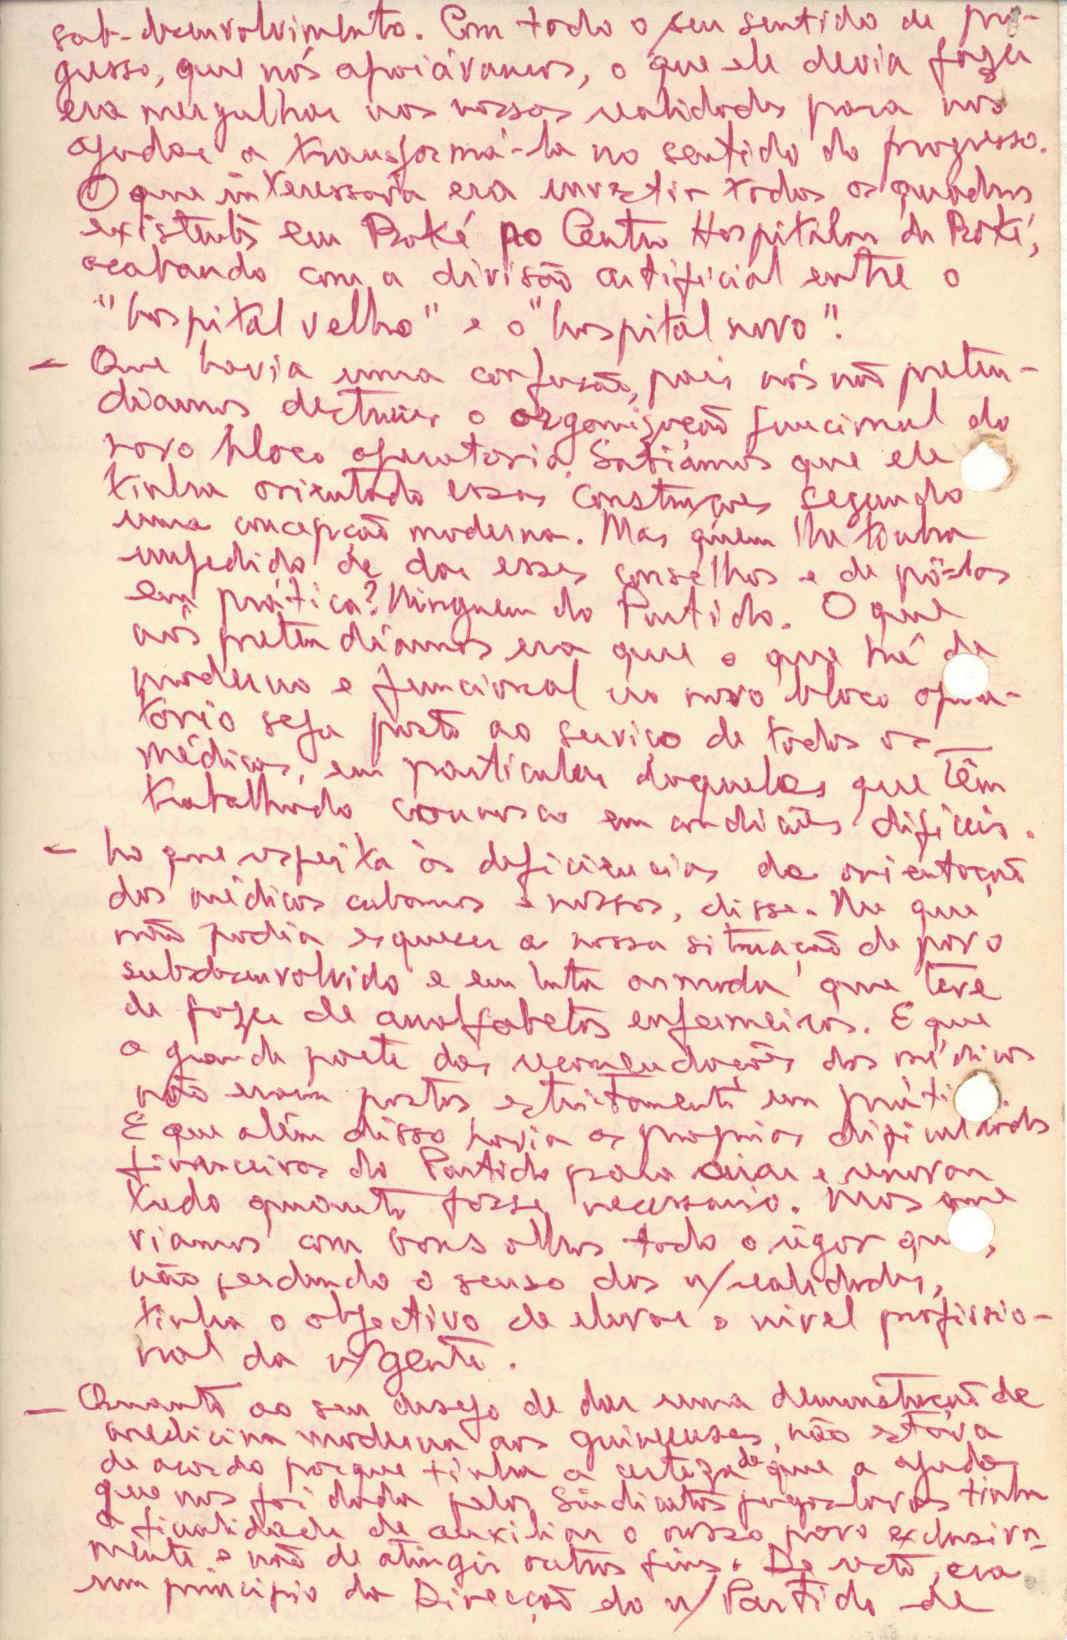 sub-desenvolvimento. Com todo o seu sentido de pro-
gresso, que nós apoiávamos, o que ele devia fazer
era mergulhar nas nossas realidades para nos
ajudar a transformá-la no sentido do progresso.
O que interessava era investir todos os quadros
existentes em Boké no Centro Hospitalar de Boké,
acabando com a divisão artificial entre o
"hospital velho" e o "hospital novo".
— Que havia uma confusão, pois nós não preten-
díamos destruir a organização funcional do
novo bloco operatorio. Sabiámos que ele
tinha orientado essas construções segundo
uma concepção moderna. Mas quem lhe tinha
impedido de dar esses conselhos e de pô-los
em prática? Ninguem do Partido. O que
nós pretendíamos era que o que há de
moderno e funcional no novo bloco opera-
tório seja posto ao serviço de todos os
médicos, em particular daqueles que têm
trabalhado connosco em condições difíceis.
— No que respeita às deficiencias da orientação
dos médicos cubanos e nossos, disse-lhe que
não podia esquecer a nossa situação de povo
subdesenvolvido e em luta armada, que teve
de fazer de analfabetos enfermeiros. E que
a grande parte das recomendações dos médicos
não eram postas estrictamente em práti
E que além disso havia as proprias dificuldades
financeiras do Partido para criar e renovar
tudo quanto fosse necessario. Mas que
viamos com bons olhos todo o rigor que,
não perdendo o senso das n/realidades,
tinha o objectivo de elevar o nivel profissio-
nal da n/gente.
— Quanto ao seu desejo de dar uma demonstração de
medicina moderna aos guineenses, não estava
de acordo porque tinha a certeza de que a ajuda
que nos foi dada pelos Sindicatos jugoslavos tinha
a finalidade de auxiliar o nosso povo exclusiva-
mente e não de atingir outros fins. De resto, era
um principio da Direcção do n/Partido de